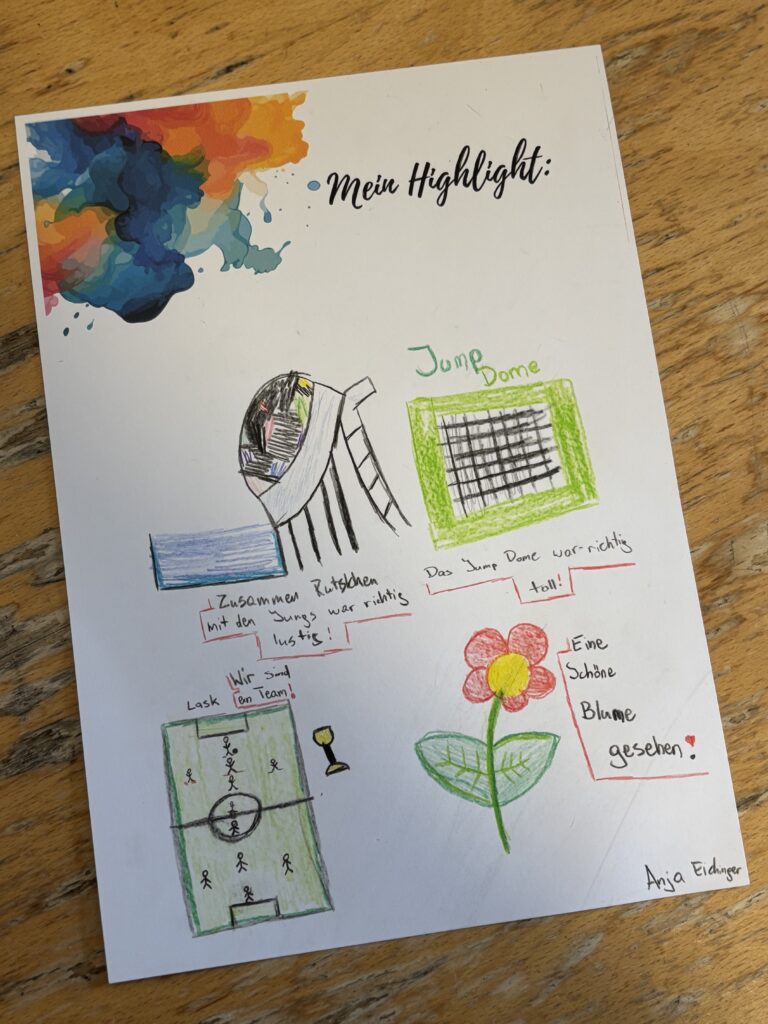 Mein Highlight:
Jump
Dome
Zusammen Rutschen
mit den Jungs war richtig
lustig!
Das Jump Dome war richtig
toll!
Wir sind
ein Team!
Lask
Eine
Schöne
Blume
gesehen!
Anja Eichinger